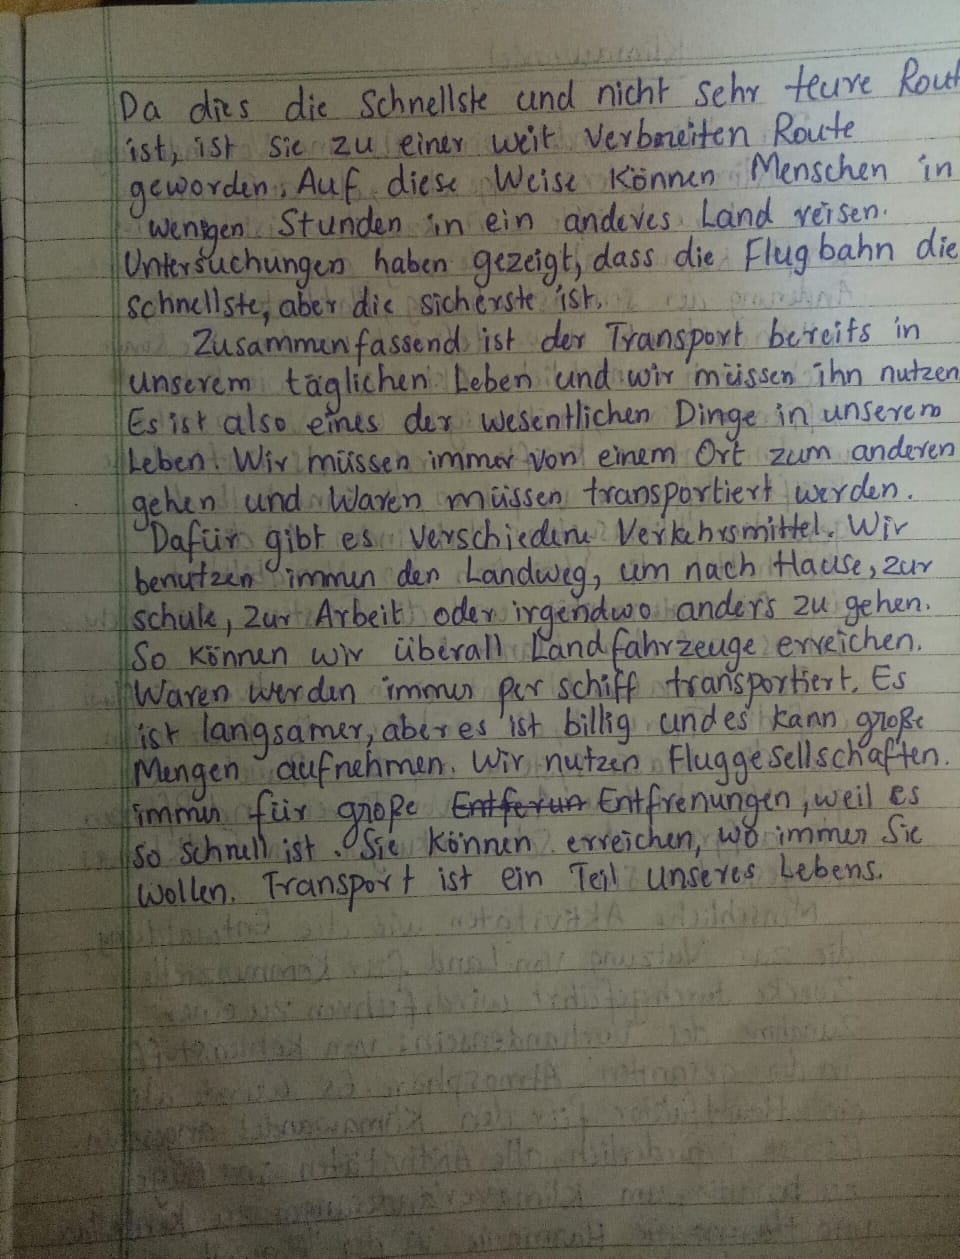 Da dies die schnellste und nicht sehr teure Rout
ist, ist sie zu einer weit verbreiten Route
geworden. Auf diese Weise können Menschen in
wenigen Stunden in ein anderes Land reisen.
Untersuchungen haben gezeigt, dass die Flugbahn die
schnellste, aber die sicherste ist.
Zusammenfassend ist der Transport bereits in
unserem täglichen Leben und wir müssen ihn nutzen
Es ist also eines der wesentlichen Dinge in unserem
Leben. Wir müssen immer von einem Ort zum anderen
gehen und Waren müssen transportiert werden.
Dafür gibt es verschiedene Verkehrsmittel. Wir
benutzen immer den Landweg, um nach Hause, zur
schule, zur Arbeit oder irgendwo anders zu gehen.
So können wir überall Landfahrzeuge erreichen.
Waren werden immer per schiff transportiert. Es
ist langsamer, aber es ist billig und es kann große
Mengen aufnehmen. Wir nutzen Fluggesellschaften.
immer für große Entferun Entfrenungen, weil es
so schnell ist. Sie können erreichen, wo immer Sie
wollen. Transport ist ein Teil unseres Lebens.